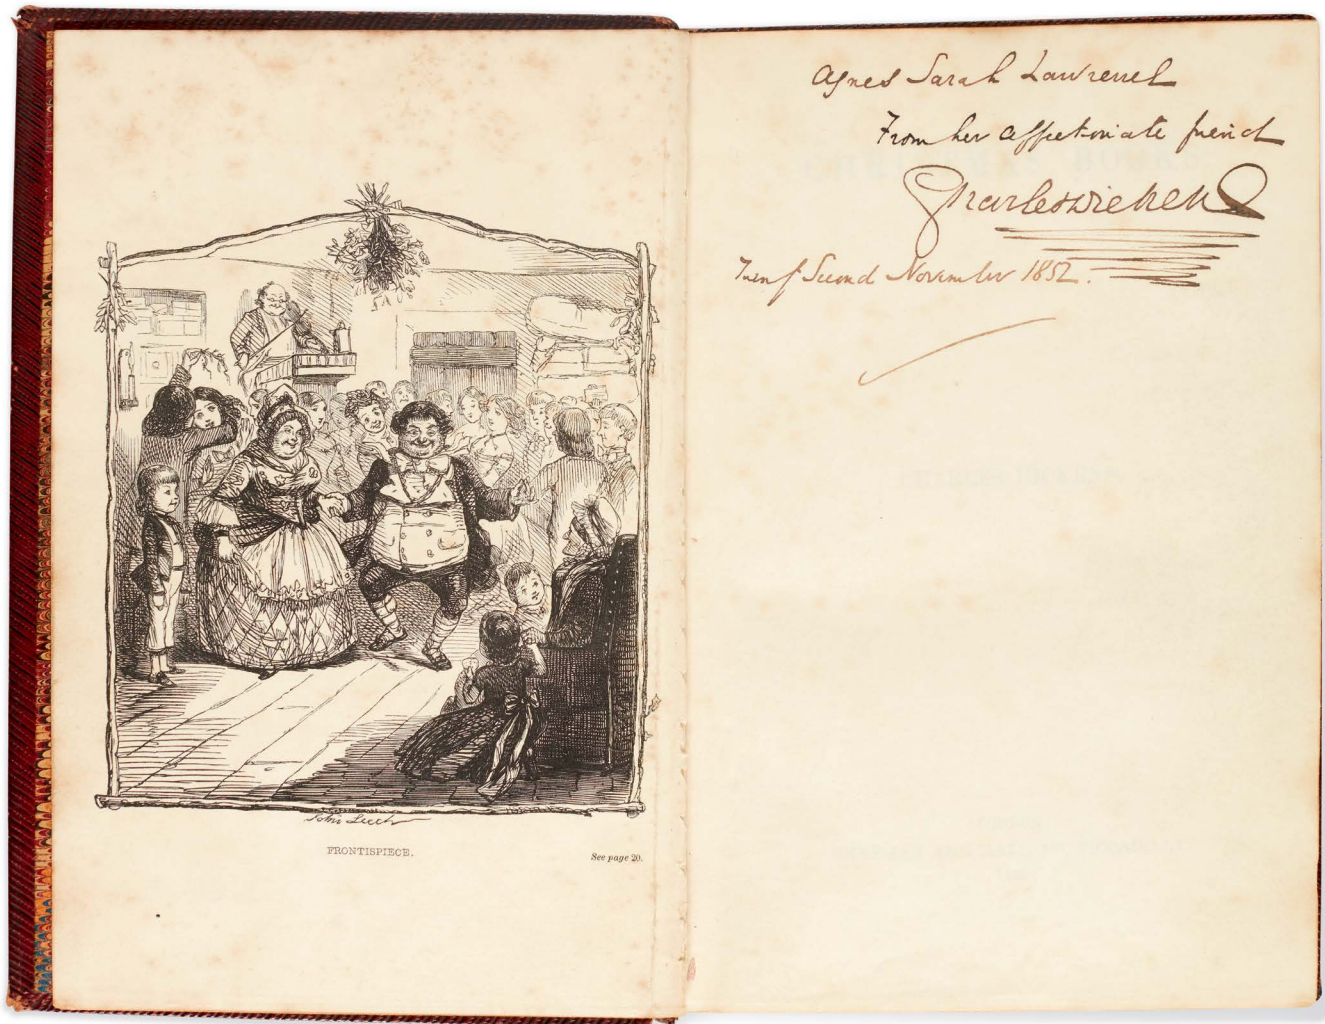 John Leech
FRONTISPIECE.
See page 20.
Agnes Sarah Lawrence
From her affectionate friend
Charles Dickens
Second November 1852.